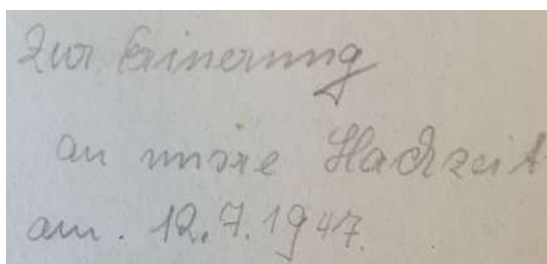 Zur Erinerung
an unsre Hochzeit
am. 12.7.1947.